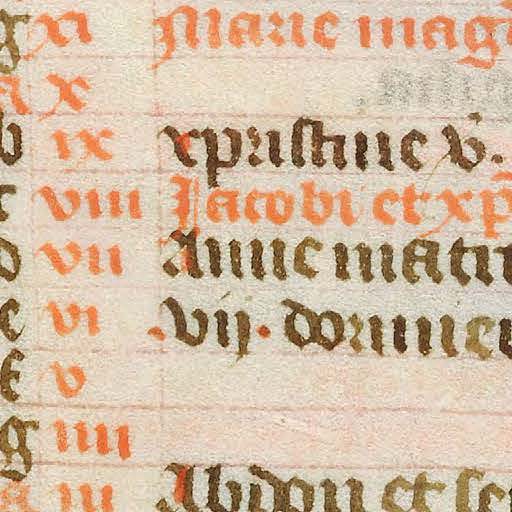 g xi Marie mag
A x
b ix xpristine v.
c viii Jacobi et xp
d vii Anne
e vi .vij. dormie
f v
g iiii
A iii Abdon et se